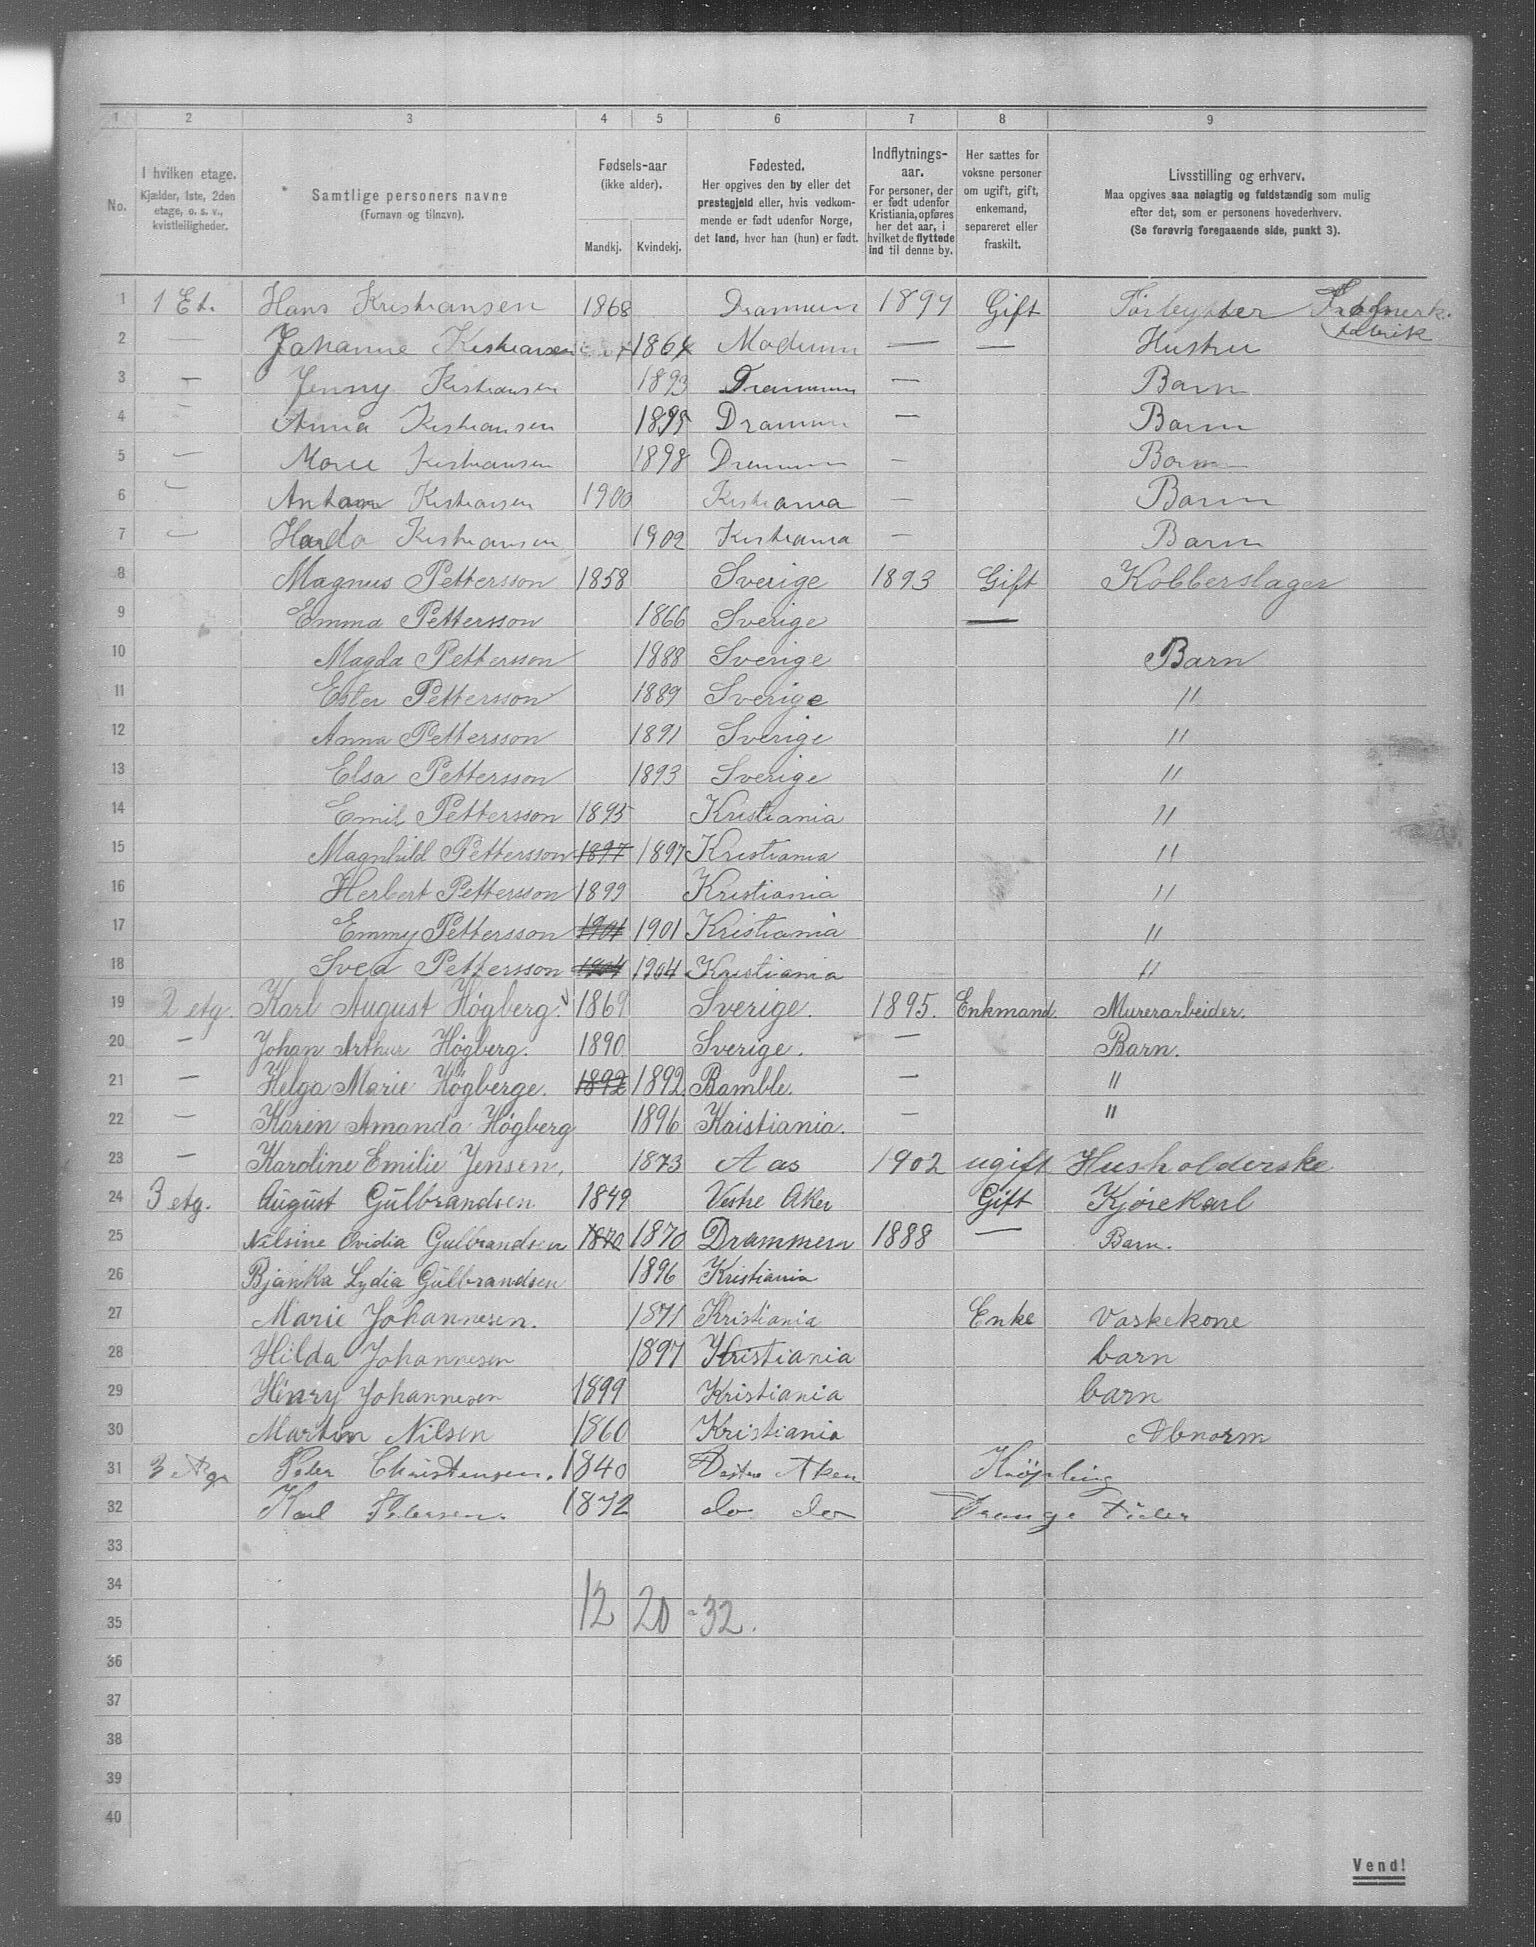 1 2 3 4 5 6 7 8 9
No.
I hvilken etage.
Kjælder, 1ste, 2den
etage, o. s. v.,
kvistleiligheder.
Samtlige personers navne
(Fornavn og tilnavn).
Fødsels-aar
(ikke alder).
Mandkj. Kvindekj.
Fødested.
Her opgives den by eller det
prestegjeld eller, hvis vedkom-
mende er født udenfor Norge,
det land, hvor han (hun) er født.
Indflytnings-
aar.
For personer, der
er født udenfor
Kristiania, opføres
her det aar, i
hvilket de flyttede
ind til denne by.
Her sættes for
voksne personer
om ugift, gift,
enkemand,
separeret eller
fraskilt.
Livsstilling og erhverv.
Maa opgives saa nøiagtig og fuldstændig som mulig
efter det, som er personens hovederhverv.
(Se forøvrig foregaaende side, punkt 3).
1 1 Et. Hans Kristiansen 1868 Drammen 1899 Gift
2 — Johanne Kristiansen 1864 Modum — — Hustru
3 — Jenny Kristiansen 1893 Drammen — Barn
4 — Anna Kristiansen 1895 Drammen — Barn
5 — Marie Kristiansen 1898 Drammen — Barn
6 — Anton Kristiansen 1900 Kristiania — Barn
7 — Kristiansen 1902 Kristiania — Barn
8 Magnus Pettersson 1858 Sverige 1893 Gift Kobberslager
9 Emma Pettersson 1866 Sverige —
10 Magda Pettersson 1888 Sverige Barn
11 Ester Pettersson 1889 Sverige "
12 Anna Pettersson 1891 Sverige "
13 Elsa Pettersson 1893 Sverige "
14 Emil Pettersson 1895 Kristiania "
15 Magnhild Pettersson 1897 1897 Kristiania "
16 Herbert Pettersson 1899 Kristiania "
17 Emmy Pettersson 1901 1901 Kristiania "
18 Svea Pettersson 1904 1904 Kristiania "
19 2 etg. Karl August Högberg. 1869 Sverige. 1895. Enkmand. Murerarbeider.
20 — Johan Arthur Högberg. 1890 Sverige. — Barn.
21 — Helga Marie Högberge. 1892 1892. Bamble. — "
22 — Karen Amanda Högberg 1896 Kristiania. — "
23 — Karoline Emilie Jensen. 1873 Aas 1902 ugift Husholderske
24 3 etg. August Gulbrandsen 1849 Vestre Aker Gift Kjørekarl
25 Nilsine Ovidia Gulbrandsen 1870 1870 Drammen 1888 — Barn.
26 Bjanka Lydia Gulbrandsen 1896 Kristiania
27 Marie Johannesen. 1871 Kristiania Enke Vaskekone
28 Hilda Johannesen 1897 Kristiania barn
29 Henry Johannesen 1899 Kristiania barn
30 Martin Nilsen 1860 Kristiania Abnorm
31 3 Peter Christensen. 1840 Vestre Aker
32 Karl Petersen. 1872 do do
33
34
35 12 20 - 32.
36
37
38
39
40
Vend!